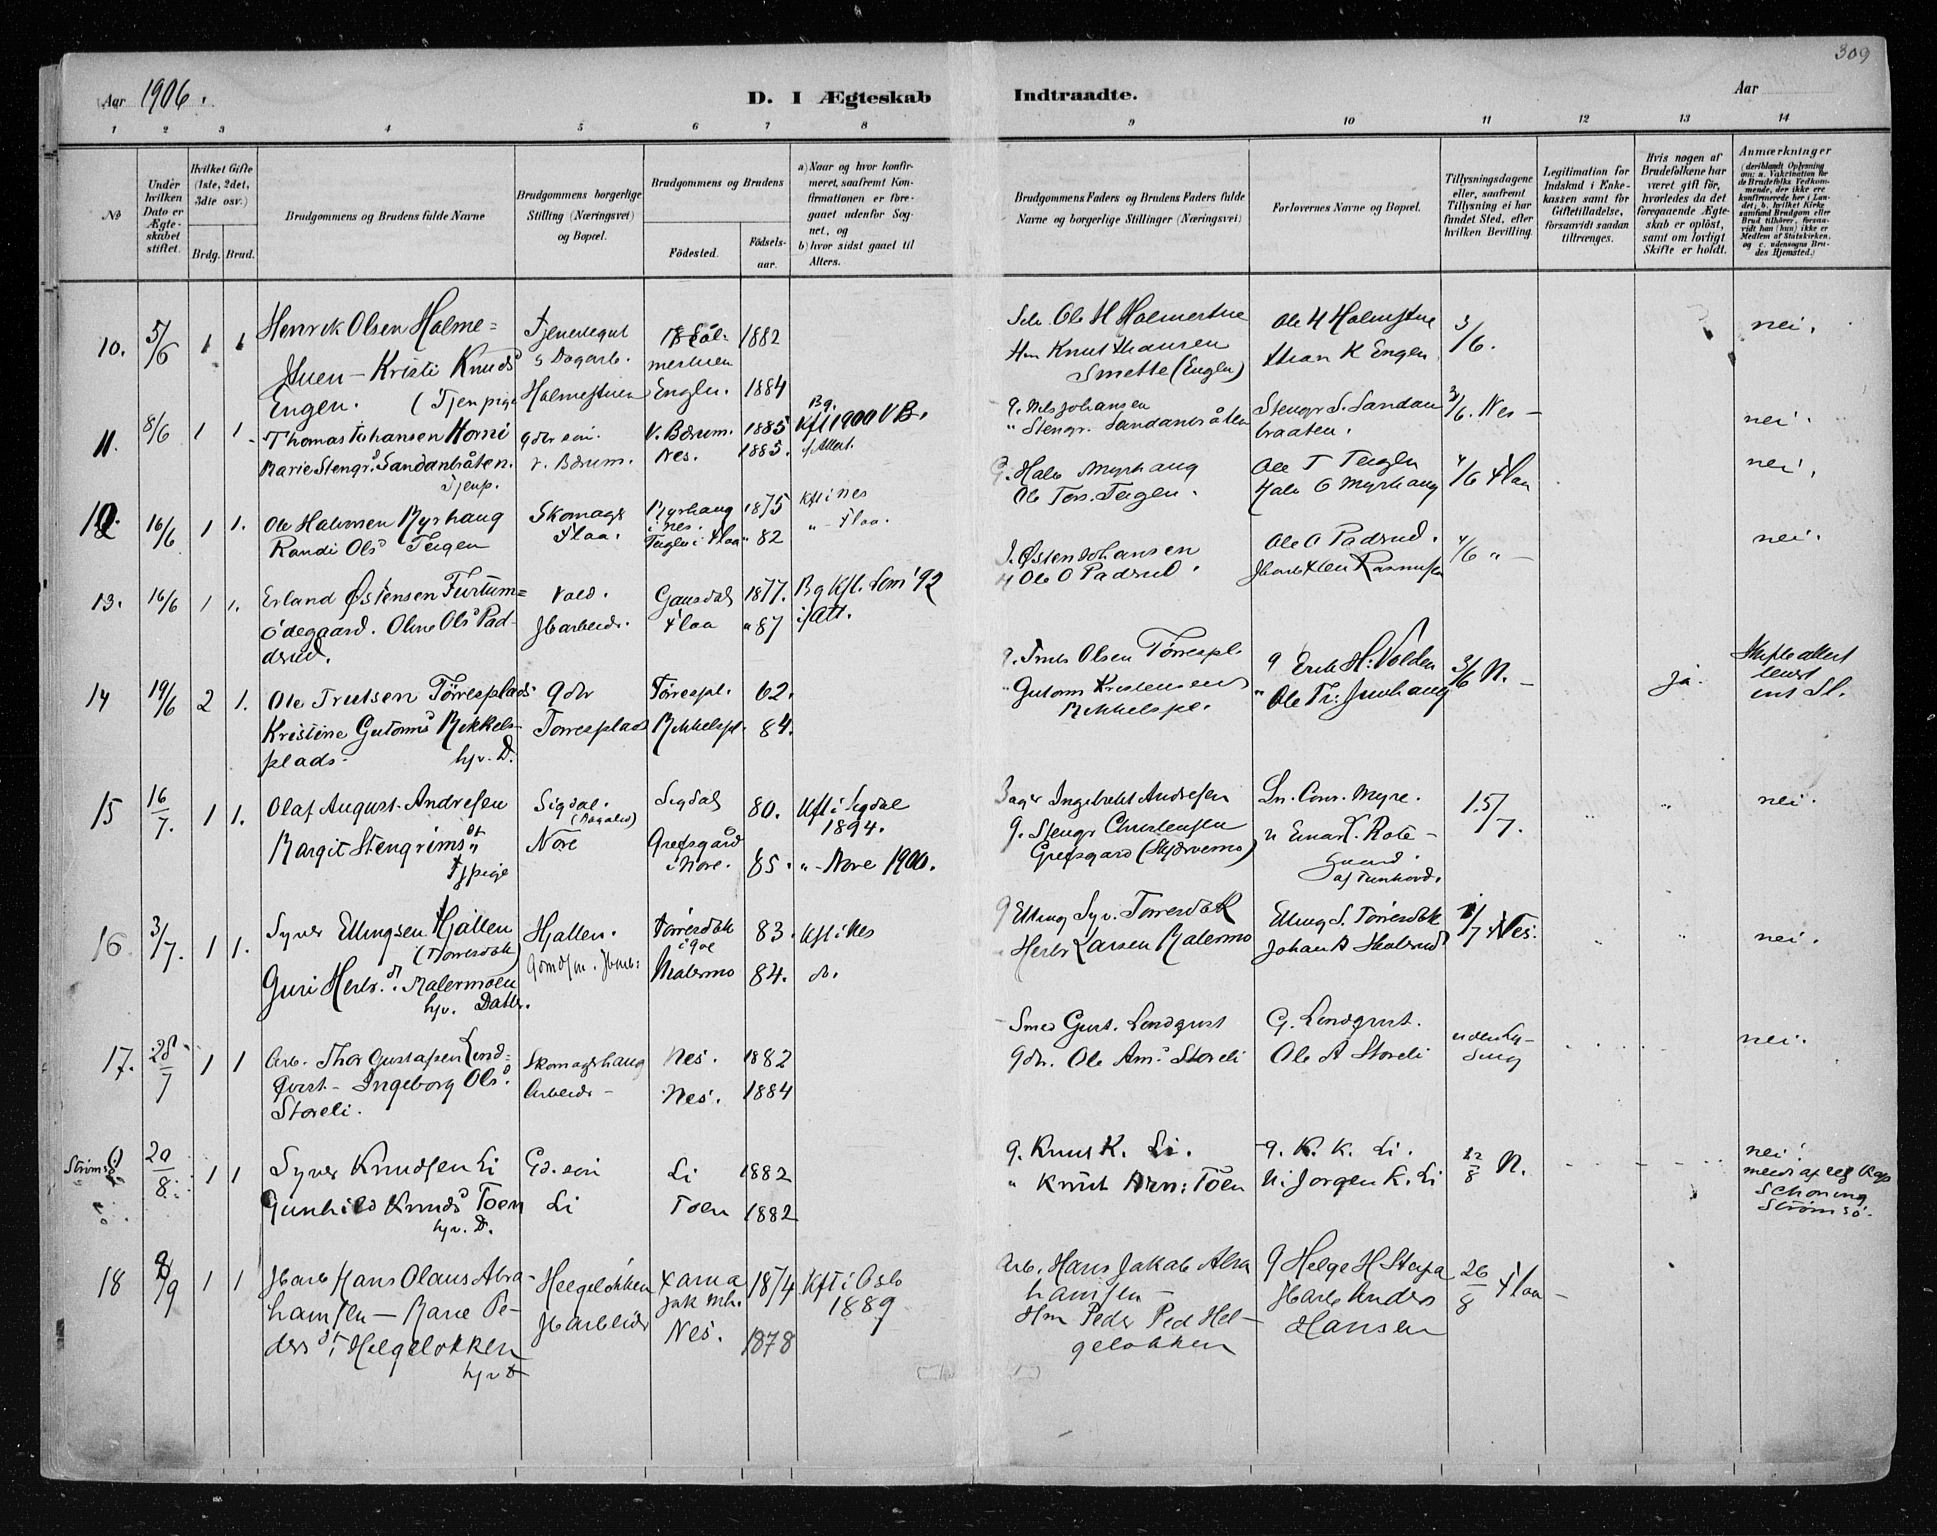 309
Aar 1906.
D. I Ægteskab Indtraadte.
Aar
1 2 3 4 5 6 7 8 9 10 11 12 13 14
No
Under hvilken Dato er Ægteskabet stiftet.
Hvilket Gifte (1ste, 2det, 3die osv.)
Brdg. Brud.
Brudgommens og Brudens fulde Navne
Brudgommens borgerlige Stilling (Næringsvei) og Bopæl.
Brudgommens og Brudens
Fødested.
Fødselsaar.
a) Naar og hvor konfirmeret, saafremt Konfirmationen er foregaaet udenfor Sognet, og
b) hvor sidst gaaet til Alters.
Brudgommens Faders og Brudens Faders fulde Navne og borgerlige Stillinger (Næringsvei)
Forlovernes Navne og Bopæl.
Tillysningsdagene eller, saafremt Tillysning ei har fundet Sted, efter hvilken Bevilling.
Legitimation for Indskud i Enkekassen samt for Giftetilladelse, forsaavidt saadan tiltrænges.
Hvis nogen af Brudefolkene har været gift før, hvorledes da det foregaaende Ægteskab er opløst, samt om lovligt Skifte er holdt.
Anmærkninger
(deriblandt Oplysning om: a. Vakcination for de Brudefolks Vedkommende, der ikke ere konfirmerede her i Landet; b. hvilket Kirkesamfund Brudgom eller Brud tilhører, forsaavidt han (hun) ikke er Medlem af Statskirken, og c. udensogns Brudes Hjemsted.)
10. 5/6 1 1 Henrik Olsen Holme=
stuen - Kristi Knuds
Engen. (Tjenpige
Tjenestegut
s Dagarb.
Holmestuen
Hol-
mestuen 1882
Engen. 1884
Ole H Holmestue
Hm Knut Hansen
Smette (Engen)
Ole H Holmstue
K Engen
3/6.
nei.
11. 8/6 1 1. Thomas Johansen Horni
Marie Stengrs Sandanbråten.
Tjenp.
gdbr søn.
V. Bærum.
V. Bærum. 1885
Nes. 1885.
Bg.
Kft 1900 V B.
g. Nils Johansen
" Stengr. Sandanbråten
Stengr S. Sandan
braaten.
3/6. Nes -
nei.
12. 16/6 1 1. Ole Halvorsen Myrhaug
Randi Ols Teigen
Skomager
Flaa.
Myrhaug
i Nes. 1875
Teigen i Flaa " 82
Kft i Nes
" - Flaa.
G. Halv Myrhaug
Ole Tors. Teigen.
Ole T Teigen
Halv O Myrhaug
4/6 Flaa
nei.
13. 16/6 1 1. Erland Østensen Furtum=
ødegaard. Oline Ols Pad-
drud.
Vold.
Jbarbeider.
Gausdal 1877.
Flaa " 87
Bg Kft. Lom '92
Att.
Østen Johansen
Ole O Padrud.
Ole O Padrud.
Jbarb Rasmusen
4/6 " -
nei.
14 19/6 2 1. Ole Trulsen Tørresplads
Kristine Gutorms Mikkels-
plads. hjv. D.
Gdbr
Torresplads
Tørrespl. 62.
Mikkelspl. 84.
g. Truls Olsen Tørrespl.
" Gutorm Kristensen
Mikkelspl.
g Erik H: Volden
" Ole Tr: Juvhaug
3/6 N. -
ja.
Skifteattest
levert
15 16/7. 1 1. Olaf August. Andresen
Margit Stengrims dt
Tjpige
Sigdal.
Nore
Sigdal 80.
Grefsgård
i Nore. 85.
Kft i Sigdal
1894.
" - Nore 1900.
Bager Ingebrekt Andresen
g. Stengr Christensen
Grefsgard (Skjærvemo)
Ln. Conr. Myre.
n Einar K. Rote-
gaard.
af Tunhovd.
15/7.
nei.
16. 3/7. 1 1. Syver Ellingsen Hjallen
(Torresdok)
Guri Herbr. dt. Malermoen
hjv. Datter.
Hjallen.
Torresdok
i Gol 83.
Malermo 84.
Kft i Nes
do.
g Elling Syv. Torresdok
Herbr Larsen Malermo
Elling S. Torresdok
Johan A Skolerud
1/7 Nes.
nei.
17. 28/7 1 1 Arb. Thor Gustafsen Lind-
qvist - Ingeborg Ols d.
Storeli.
Skomagerhaug
Arbeider -
Nes. 1882
Nes. 1884
- Smed Gust. Lindqvist
gdbr. Ole Am. Storeli
G. Lindqvist.
Ole A Storeli
uden Lys-
ning
nei.
Strømsø 20/8. 1 1 Syver Knudsen Li
Gunhild Knuds Toen
hjv. D.
Gd. søn
Li
Li 1882
Toen 1882
g. Knut K. Li.
" Knut Arn: Toen
g. K. K. Li.
Ni Jørgen K. Li
12/8 N.
nei.
Schøning
Strømsø.
18 2/9 1 1 Jbarb Hans Olaus Abra-
hamsen - Marie Pe-
ders dt, Helgeløkken
hjv D
Helgeløkken
Jbarbeider
1874
Nes. 1878
Kft i Oslo
1889
Arb. Hans Jakob Abra
hamsen -
Hm Peder Ped Hel-
geløkken
g Helge H Stapa
Jbarb Anders
Hansen
26/8 Flaa -